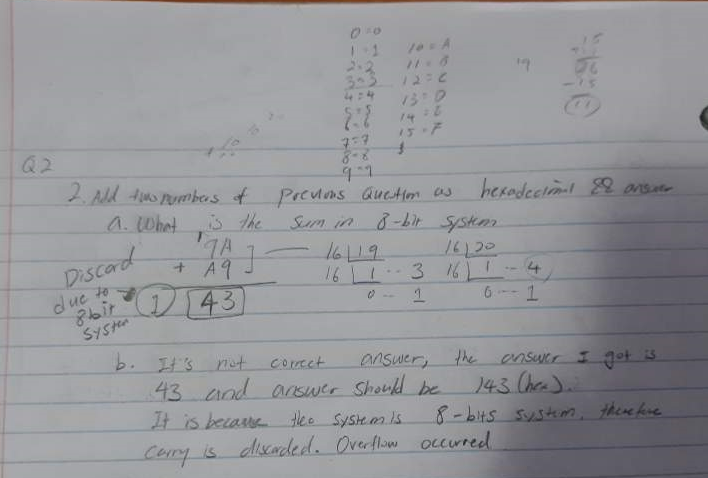 0=0
1=1 10=A
2=2 11=B
3=3 12=C
4=4 13=D
5=5 14=E
6=6 15=F
7=7
8=8
9=9
19
Q2
2. Add two numbers of previous Question as hexadecimal answer
a. What is the sum in 8-bit system
1 7A
+ A9
1 43
Discard
due to
8bit
system
16 19 16 20
16 1 -- 3 16 1 -- 4
0 -- 1 0 --- 1
b. It's not correct answer, the answer I got is
43 and answer should be 143 (hex).
It is because the system is 8-bits system, therefore
carry is discarded. Overflow occurred